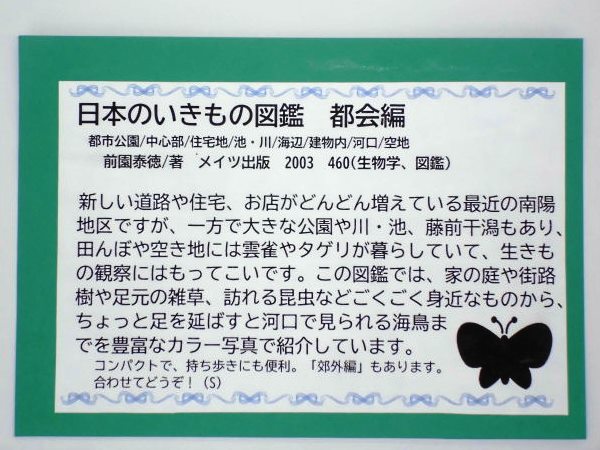 日本のいきもの図鑑　都会編
都市公園/中心部/住宅地/池・川/海辺/建物内/河口/空地
前園泰徳/著　メイツ出版　2003　460(生物学、図鑑)
新しい道路や住宅、お店がどんどん増えている最近の南陽
地区ですが、一方で大きな公園や川・池、藤前干潟もあり、
田んぼや空き地には雲雀やタゲリが暮らしていて、生きも
の観察にはもってこいです。この図鑑では、家の庭や街路
樹や足元の雑草、訪れる昆虫などごくごく身近なものから、
ちょっと足を延ばすと河口で見られる海鳥ま
でを豊富なカラー写真で紹介しています。
コンパクトで、持ち歩きにも便利。「郊外編」もあります。
合わせてどうぞ！（S）